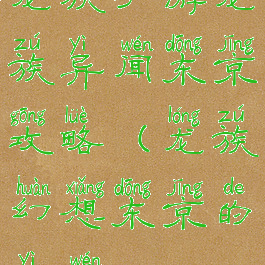 zú yì wén dōng jīng
族异闻东京
gōng lüè lóng zú
攻略(龙族
huàn xiǎng dōng jīng de
幻想东京的
yì wén